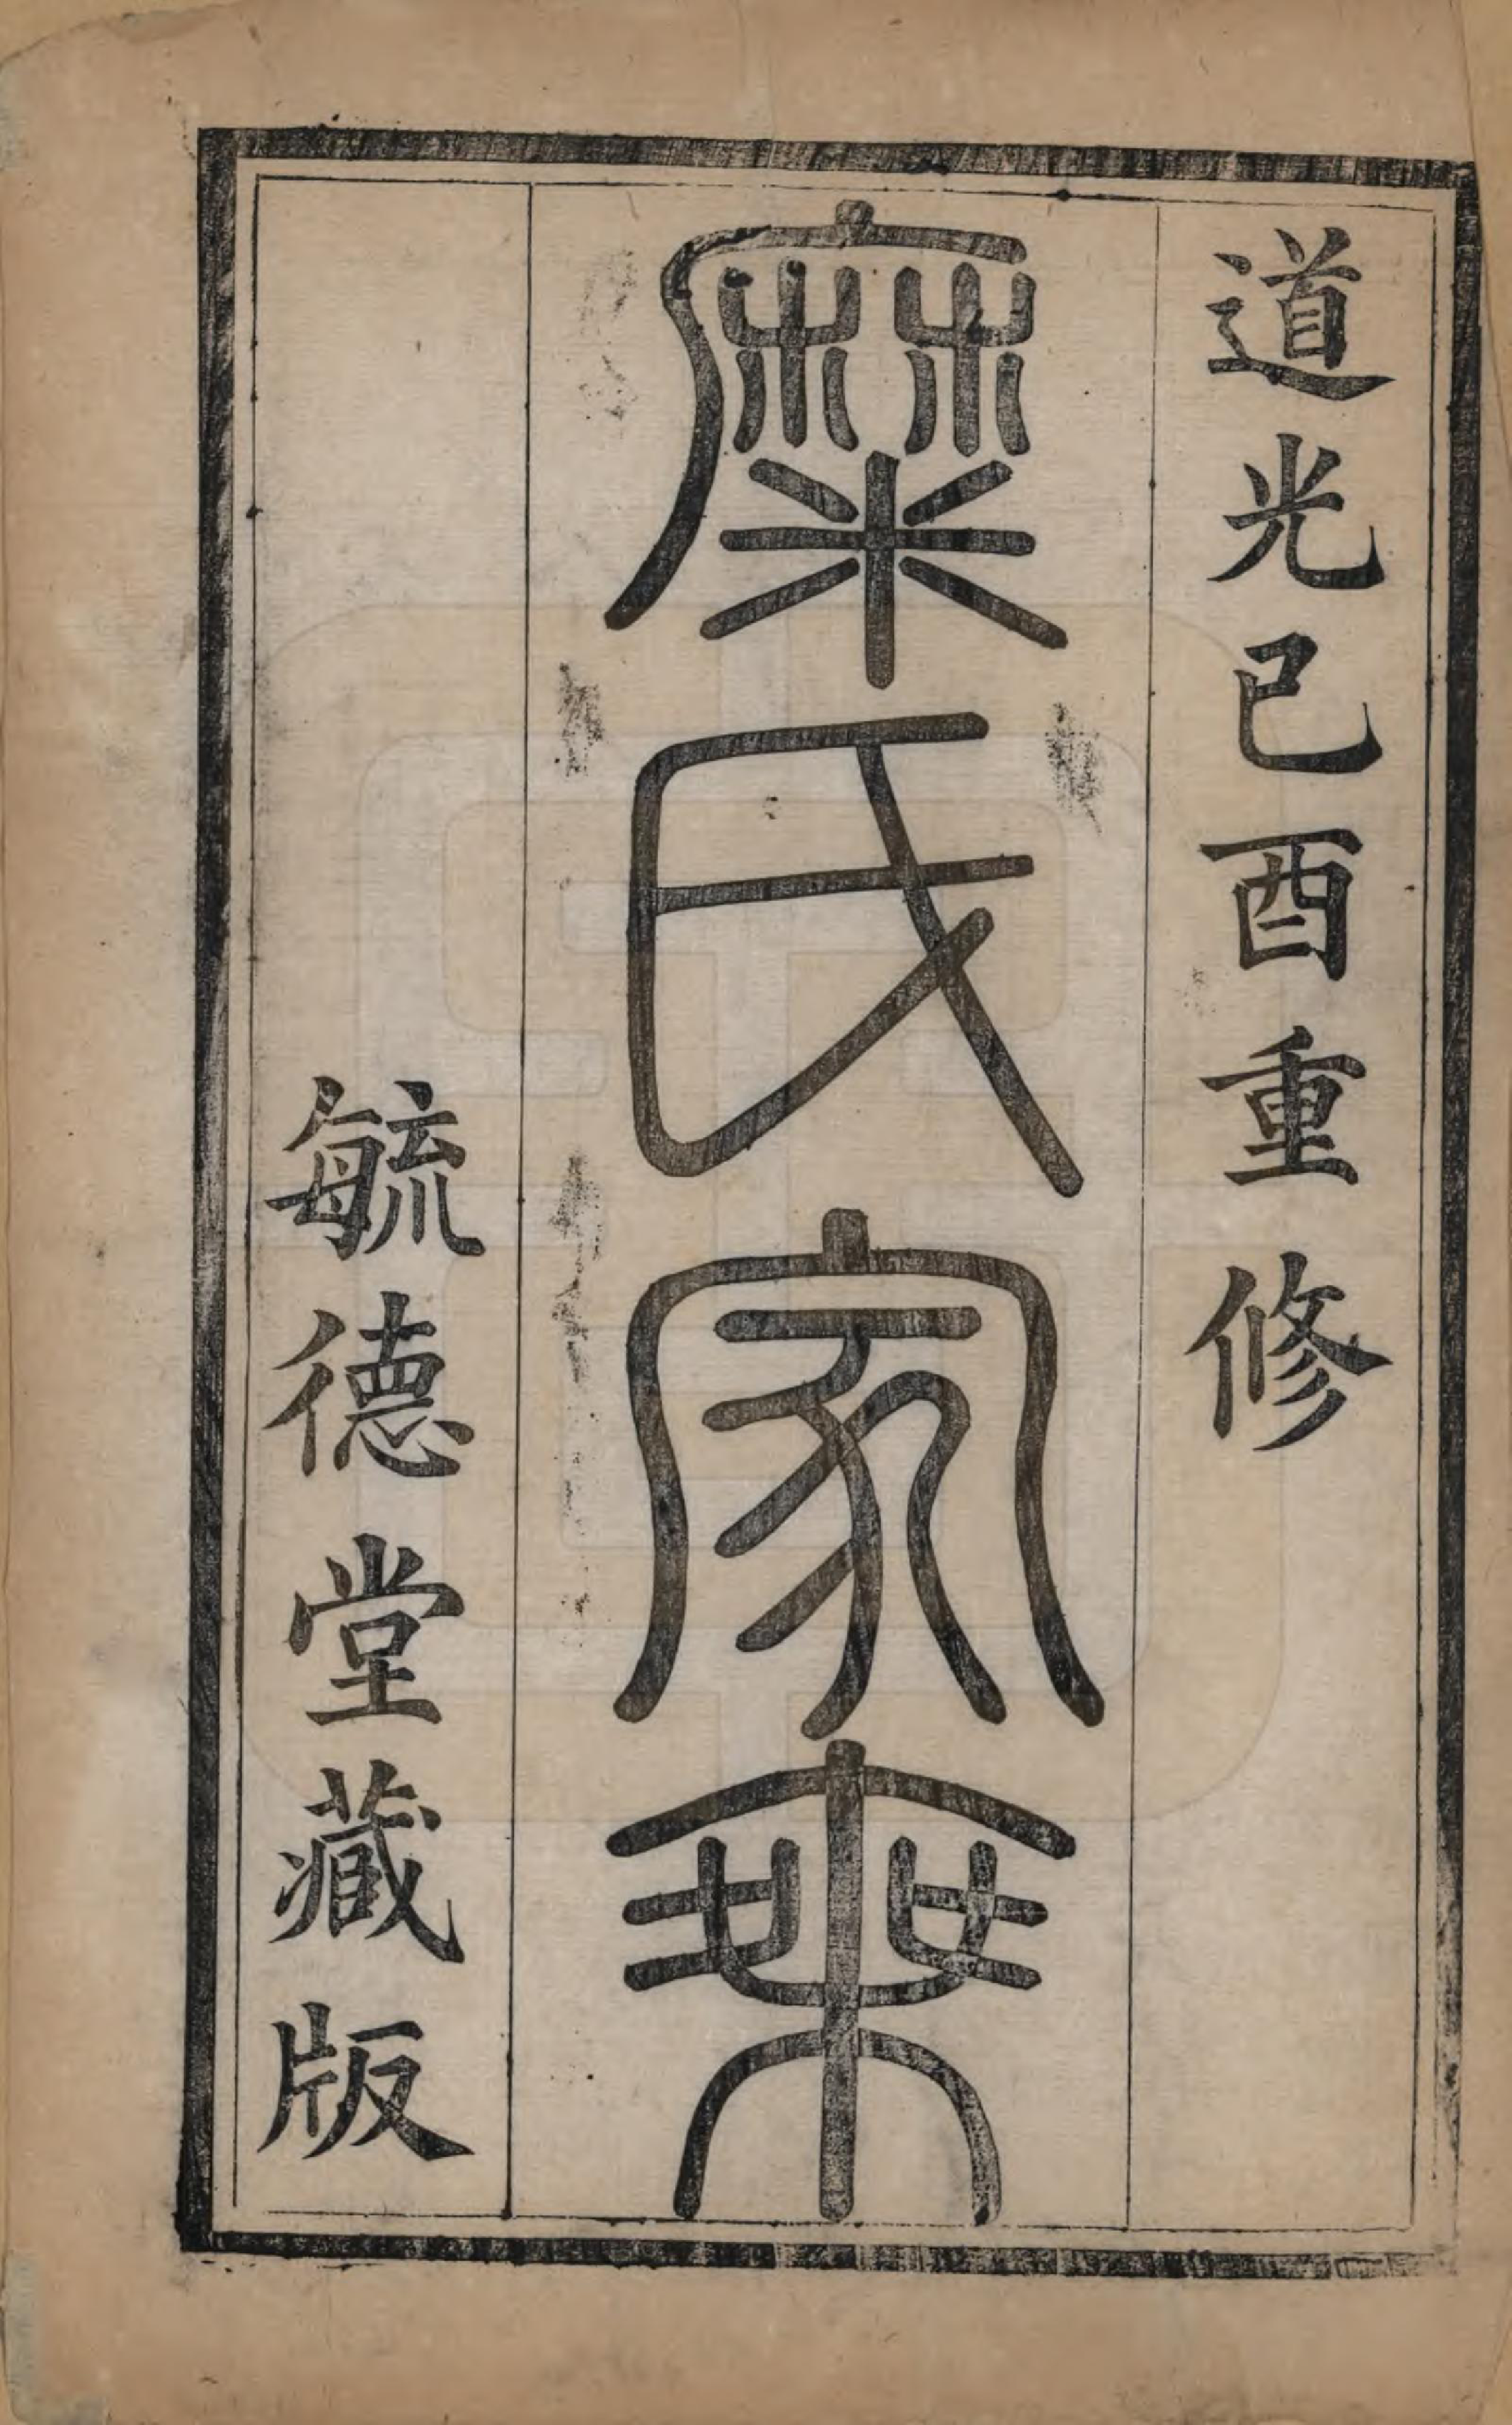 道光己酉重修
糜氏家乘
毓德堂藏版